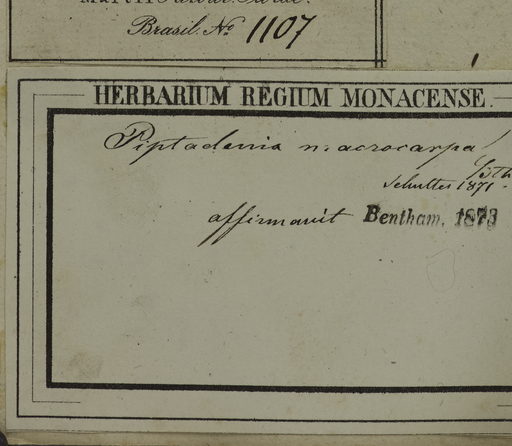 Brasil. No 1107
HERBARIUM REGIUM MONACENSE.
Piptadenia macrocarpa
Bth
Schultes 1871.
affirmavit Bentham. 1873